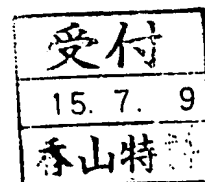 受付
15. 7. 9
香山特許